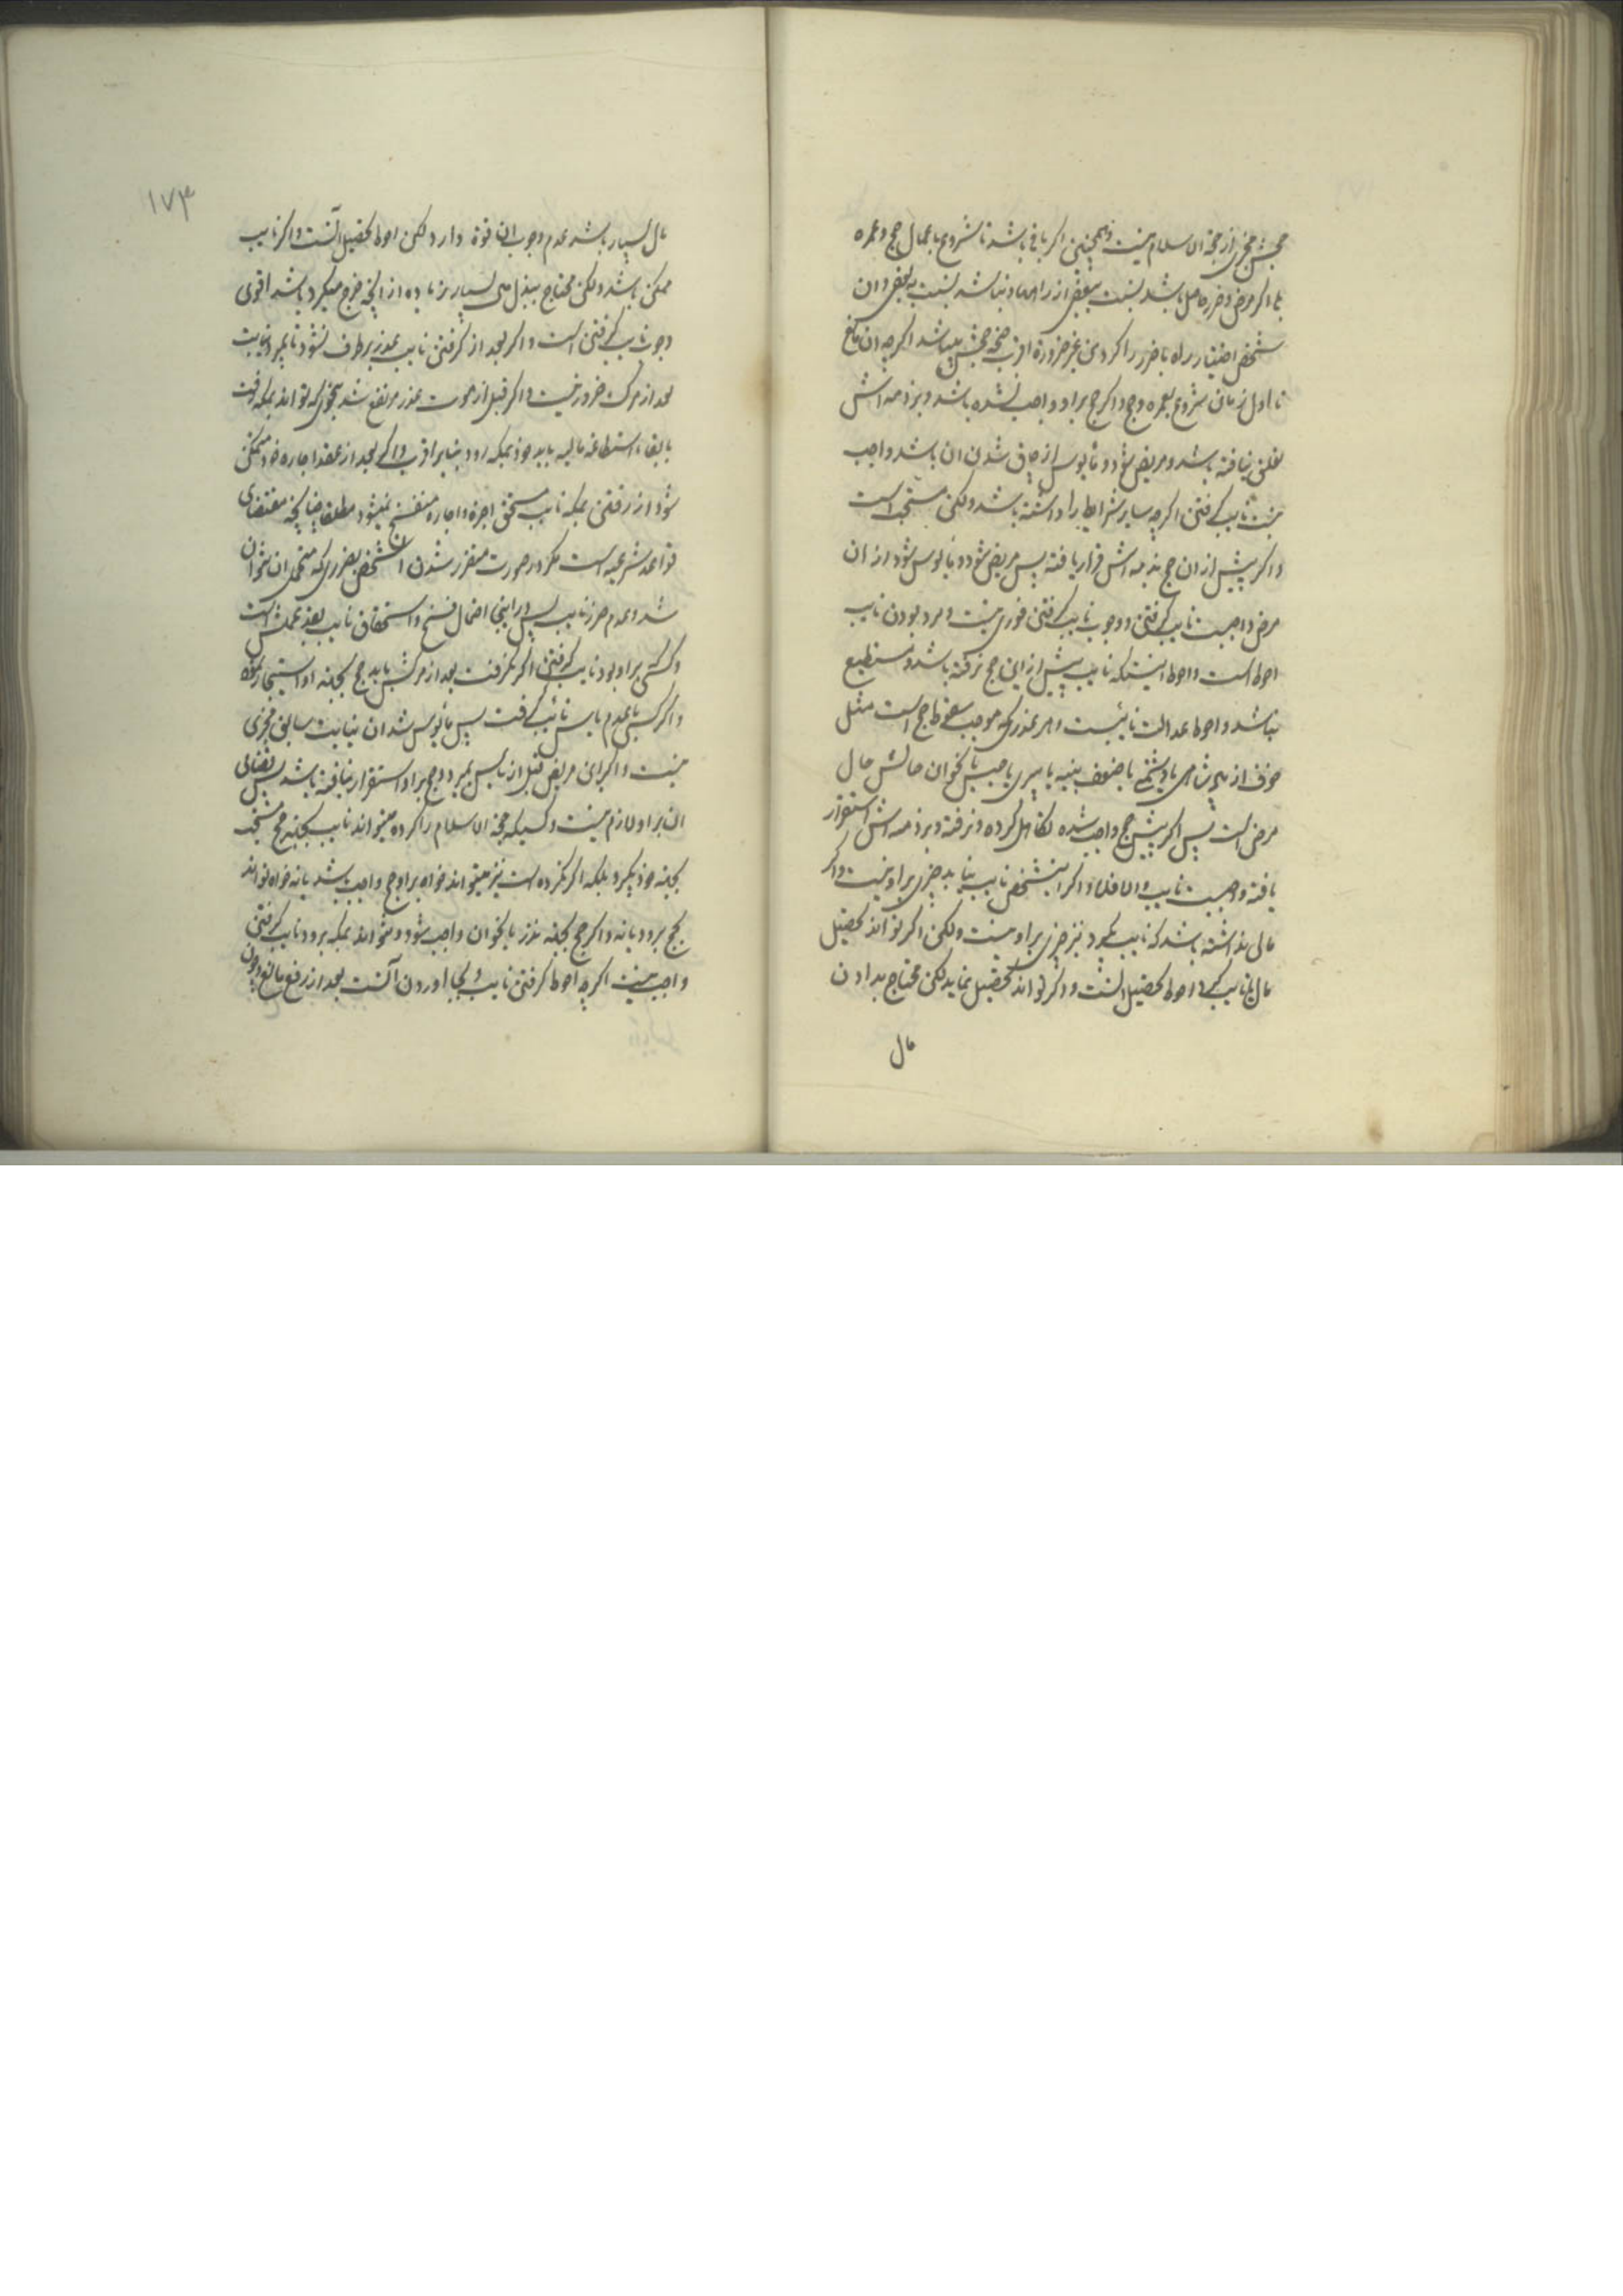 حجش مجزی از حجة الاسلام نیست و همچنین اگر باقی باشد تا شروع باعمال حج و عمره
بلی اگر مرض و ضرر حاصل باشد بنسبت ببعض از راهها و نباشد بنسبت ببعض و ان
شخص اختیار راه با ضرر را کرد من غیر ضرورة اقرب صحة حجش میباشد اگرچه ان مانع
تا اول زمان شروع بعمره و حج و اگر حج بر او واجب نشده باشد و بر ذمه اش
تعلق نیافته باشد و مریض شود و مأیوس از چاق شدن ان باشد واجب
نیست نایب گرفتن اگرچه سایر شرایط را داشته باشد ولکن مستحب است
و اگر پیش از ان حج بذمه اش قرار یافته پس مریض شود و مأیوس شود از ان
مرض واجبست نایب گرفتن و وجوب نایب گرفتن فوری نیست و مرد بودن نایب
احوط است و احوط اینستکه نایب پیش از این حج نرفته باشد و مستطیع
نباشد و احوط عدالت نایبست و هر عذری که موجب سقوط حج است مثل
خوف از پادشاهی یا دشمنی یا ضعف بنیه یا پیری یا حبس یا نحو ان حالش حال
مرض است پس اگر پیش حج واجب شده تکاهل کرده و نرفته و بر ذمه اش استقرار
یافته واجبست نایب و الا فلا و اگر اینشخص نایب نیابد چیزی بر او نیست و اگر
مالی نداشته باشد که نایب بگیرد نیز چیزی بر او نیست ولکن اگر تواند تحصیل
مال نایب کند احوط تحصیل انست و اگر تواند تحصیل نماید لکن محتاج بدادن
مال
۱۷۳
مال بسیار باشد عدم وجوب ان قوة دارد لکن احوط تحصیل آنست و اگر نایب
ممکن باشد ولکن محتاج ببذل مال بسیار زیاده از آنچه خرج میکرد باشد اقوی
وجوب نایب گرفتن است و اگر بعد از گرفتن نایب عذر برطرف نشود تا بمیرد نیابت
بعد از مرگ ضرور نیست و اگر قبل از موت عذر مرتفع شد بنحوی که تواند بمکه رفت
با بقاء استطاعة مالیه باید خود بمکه رود بنابر اقرب و اگر بعد از عقد اجاره خود متمکن
شود از رفتن بمکه نایب مستحق اجرة و اجاره منفسخ نمیشود مطلقا چنانچه مقتضای
قواعد شرعیه است مگر در صورت متضرر شدن ان شخص بضرری که متحمل ان نتوان
شد و عدم ضرر نایب پس در اینجا احتمال فسخ و استحقاق نایب بقدر عملش است
و کسی که بر او بود نایب گرفتن اگر نگرفت بعد از مرگش باید حج بجهة او استیجار نمود
و اگر کسی با عدم یأس نایب گرفت پس مأیوس شد ان نیابت سابق مجزی
نیست و اگر این مریض قبل از یأس بمیرد و حج بر او استقرار نیافته باشد پس قضای
ان بر او لازم نیست و کسیکه حجة الاسلام را کرده میتواند نایب بجهة حج مستحب
بجهة خود بگیرد بلکه اگر نکرده است نیز میتواند خواه بر او حج واجب باشد یا نه خواه تواند
بحج برود یا نه و اگر حج بجهة نذر یا نحو ان واجب شود و نتواند بمکه برود نایب گرفتن
واجب نیست اگرچه احوط گرفتن نایب و بجا اوردن آنست بعد از رفع مانع و چون